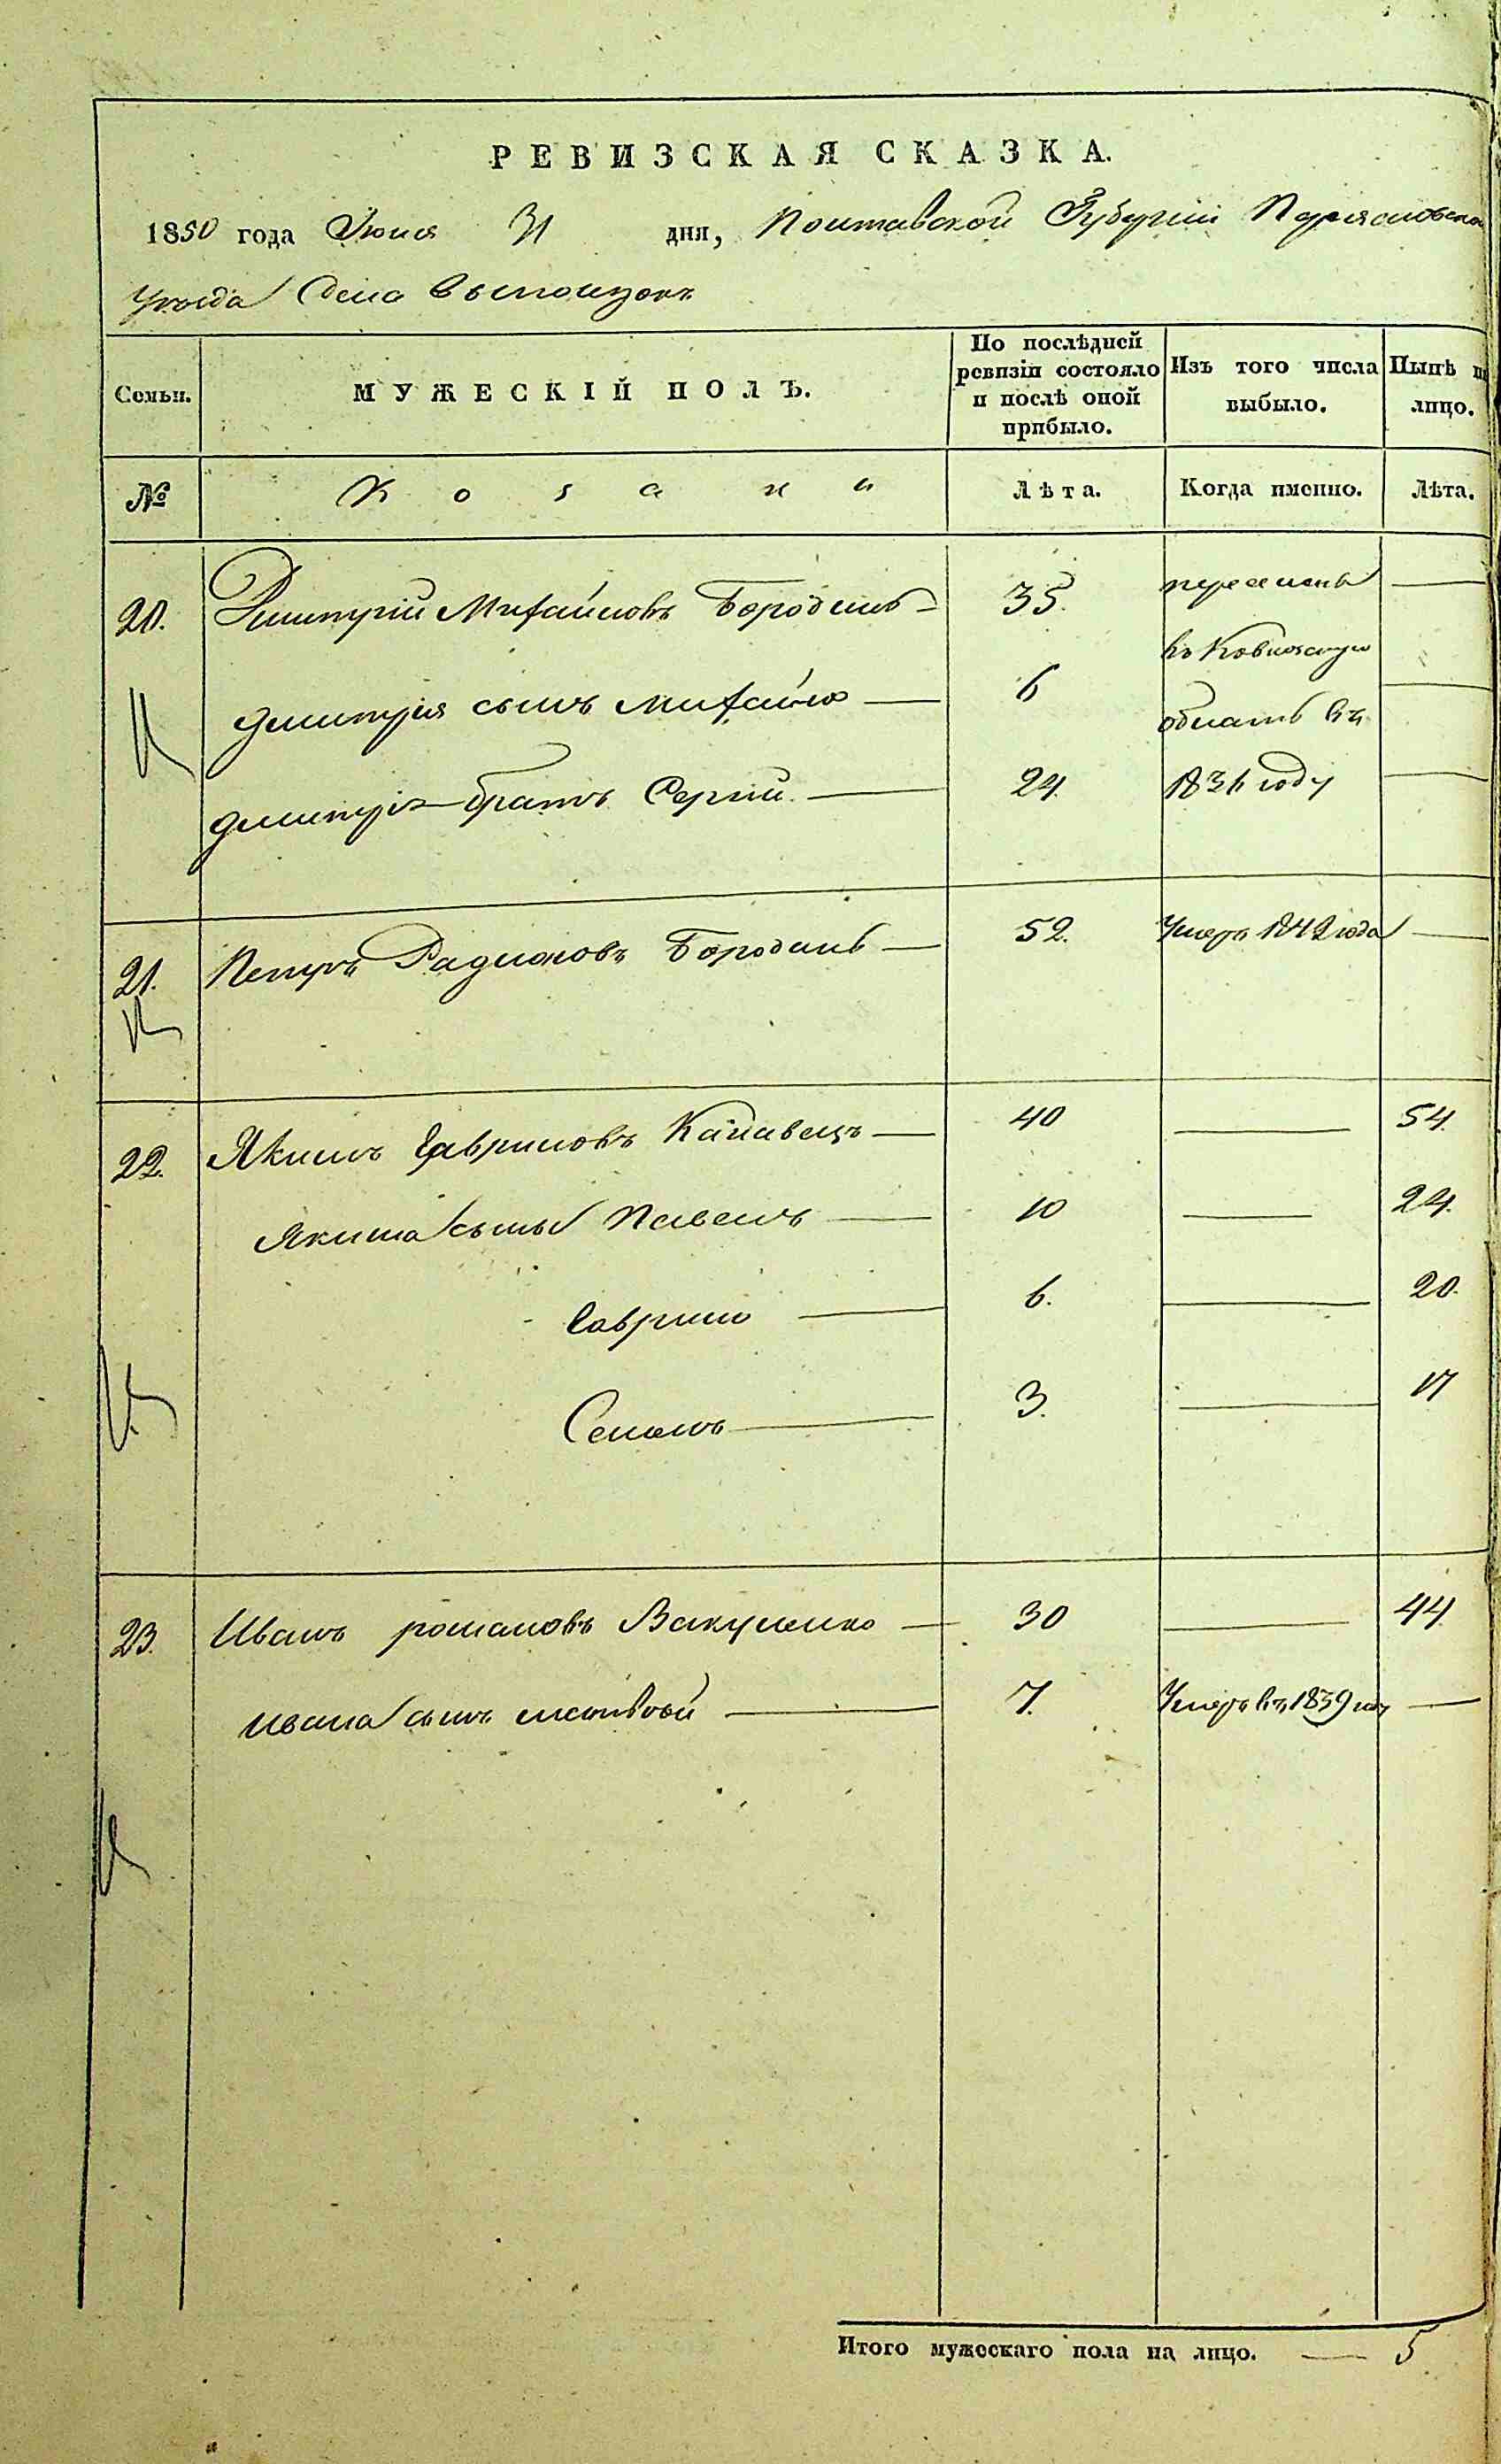 РЕВИЗСКАЯ СКАЗКА.
1850 года Июня 31 дня, Полтавской Губернии Переяславского
Уезда Села
Семьи. МУЖЕСКІЙ ПОЛЪ. По послѣдней ревизіи состояло и послѣ оной прибыло. Изъ того числа выбыло. Нынѣ на лицо.
№ Козаки Лѣта. Когда именно. Лѣта.
20. Дмитрій Михайловъ Бородань 35. переселенъ
въ
Дмитрія сынъ Михайло 6
область въ
Дмитрія братъ Сергій. 24. 1836 году
21. Петръ Радионовъ Бородань 52. Умеръ 1842 года
22. Якимъ Гавриловъ Канавецъ 40 54.
Якима сыны Павелъ 10 24.
Гаврило 6. 20.
Семенъ 3. 17
23. Иванъ романовъ Вакуленко 30 44.
Ивана сынъ матвѣй 7. Умеръ въ 1839 году
Итого мужескаго пола на лицо. 5